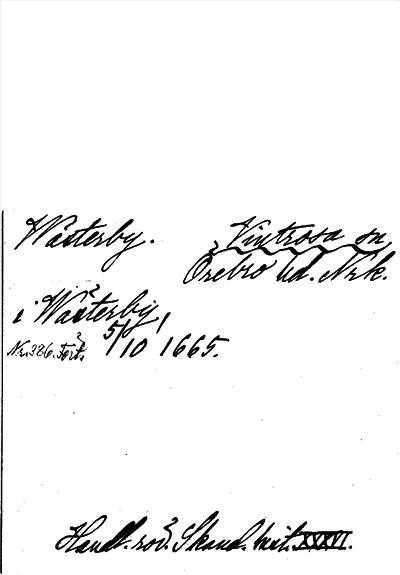 Wästerby. Vintrosa sn,
Örebro hd. Nrk.
i Wästerby,
Nr. 386. 5/10 1665.
Handl. rör. Skand. hist. XXXVI.